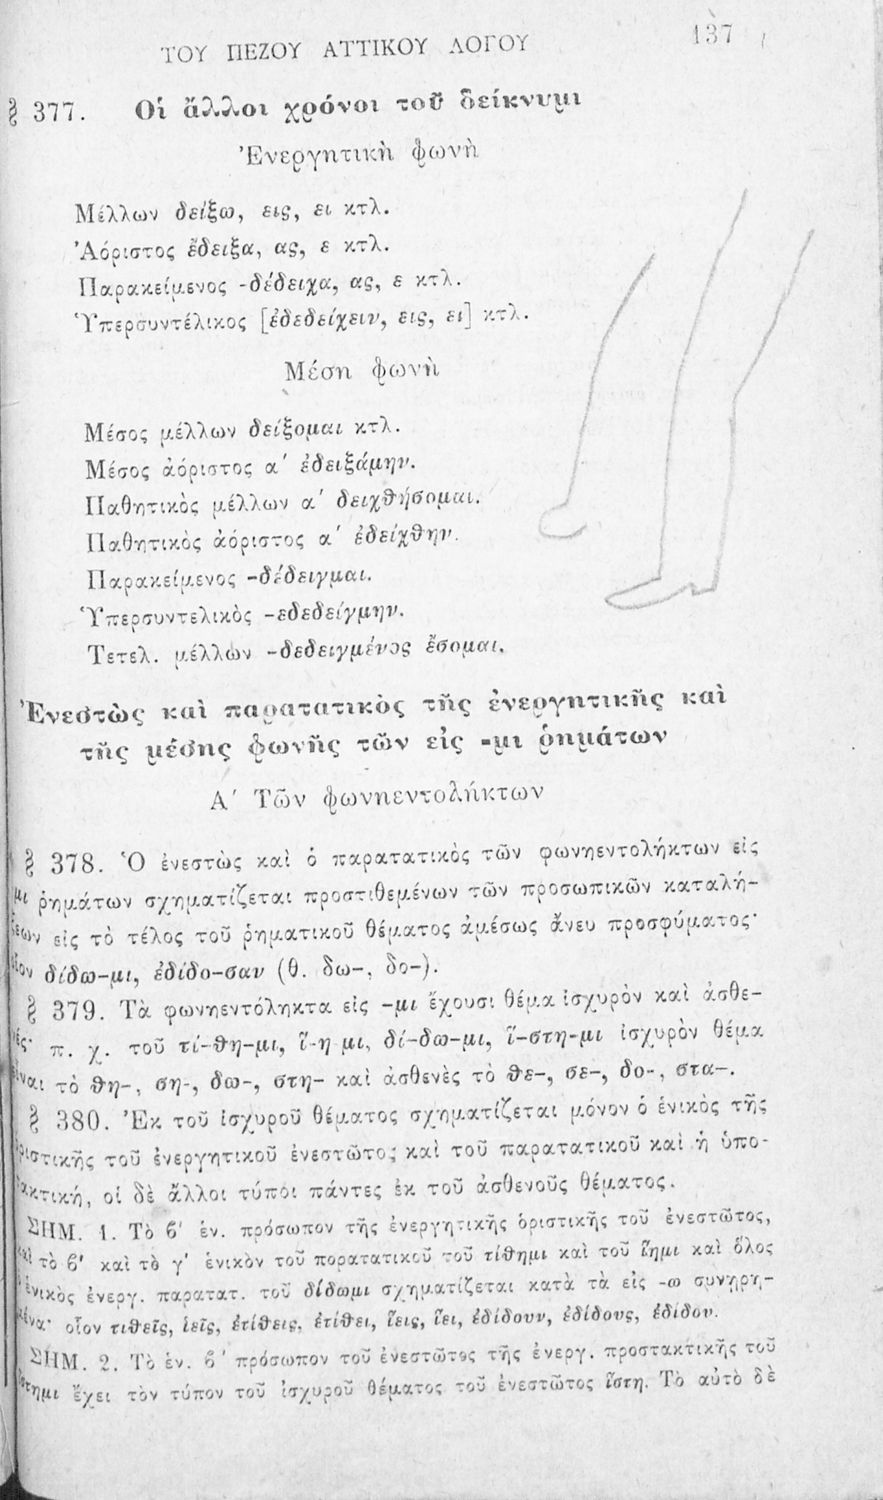 ΤΟΥ ΠΕΖΟΥ ΑΤΤΙΚΟΥ ΛΟΓΟΥ 137
§ 377. Οἱ ἄλλοι χρόνοι τοῦ δείκνυμι
Ἐνεργητικὴ φωνὴ
Μέλλων δείξω, εις, ει κτλ.
Ἀόριστος ἔδειξα, ας, ε κτλ.
Παρακείμενος -δέδειχα, ας, ε κτλ.
Ὑπερσυντέλικος [ἐδεδείχειν, εις, ει] κτλ.
Μέση φωνὴ
Μέσος μέλλων δείξομαι κτλ.
Μέσος ἀόριστος α΄ ἐδειξάμην.
Παθητικὸς μέλλων α΄ δειχθήσομαι.
Παθητικὸς ἀόριστος α΄ ἐδείχθην.
Παρακείμενος -δέδειγμαι.
Ὑπερσυντελικὸς -εδεδείγμην.
Τετελ. μέλλων -δεδειγμένος ἔσομαι.
Ἐνεστὼς καὶ παρατατικὸς τῆς ἐνεργητικῆς καὶ
τῆς μέσης φωνῆς τῶν εἰς -μι ῥημάτων
Α΄ Τῶν φωνηεντολήκτων
§ 378. Ὁ ἐνεστὼς καὶ ὁ παρατατικὸς τῶν φωνηεντολήκτων εἰς
μι ῥημάτων σχηματίζεται προστιθεμένων τῶν προσωπικῶν καταλή-
ξεων εἰς τὸ τέλος τοῦ ῥηματικοῦ θέματος ἀμέσως ἄνευ προσφύματος·
οἷον δίδω-μι, ἐδίδο-σαν (θ. δω-, δο-).
§ 379. Τὰ φωνηεντόληκτα εἰς -μι ἔχουσι θέμα ἰσχυρὸν καὶ ἀσθε-
νές· π. χ. τοῦ τί-θη-μι, ἵ-η μι, δί-δω-μι, ἵ-στη-μι ἰσχυρὸν θέμα
εἶναι τὸ θη-, ση-, δω-, στη- καὶ ἀσθενὲς τὸ θε-, σε-, δο-, στα-.
§ 380. Ἐκ τοῦ ἰσχυροῦ θέματος σχηματίζεται μόνον ὁ ἑνικὸς τῆς
ὁριστικῆς τοῦ ἐνεργητικοῦ ἐνεστῶτος καὶ τοῦ παρατατικοῦ καὶ ἡ ὑπο-
τακτική, οἱ δὲ ἄλλοι τύποι πάντες ἐκ τοῦ ἀσθενοῦς θέματος.
ΣΗΜ. 1. Τὸ ϐ΄ ἑν. πρόσωπον τῆς ἐνεργητικῆς ὁριστικῆς τοῦ ἐνεστῶτος,
καὶ τὸ ϐ΄ καὶ τὸ γ΄ ἑνικὸν τοῦ πορατατικοῦ τοῦ τίθημι καὶ τοῦ ἵημι καὶ ὅλος
ὁ ἑνικὸς ἐνεργ. παρατατ. τοῦ δίδωμι σχηματίζεται κατὰ τὰ εἰς -ω συνηρη-
μένα· οἷον τιθεῖς, ἱεῖς, ἐτίθεις, ἐτίθει, ἵεις, ἵει, ἐδίδουν, ἐδίδους, ἐδίδου.
ΣΗΜ. 2. Τὸ ἑν. ϐ΄ πρόσωπον τοῦ ἐνεστῶτος τῆς ἐνεργ. προστακτικῆς τοῦ
ἵστημι ἔχει τὸν τύπον τοῦ ἰσχυροῦ θέματος τοῦ ἐνεστῶτος ἵστη. Τὸ αὐτὸ δὲ